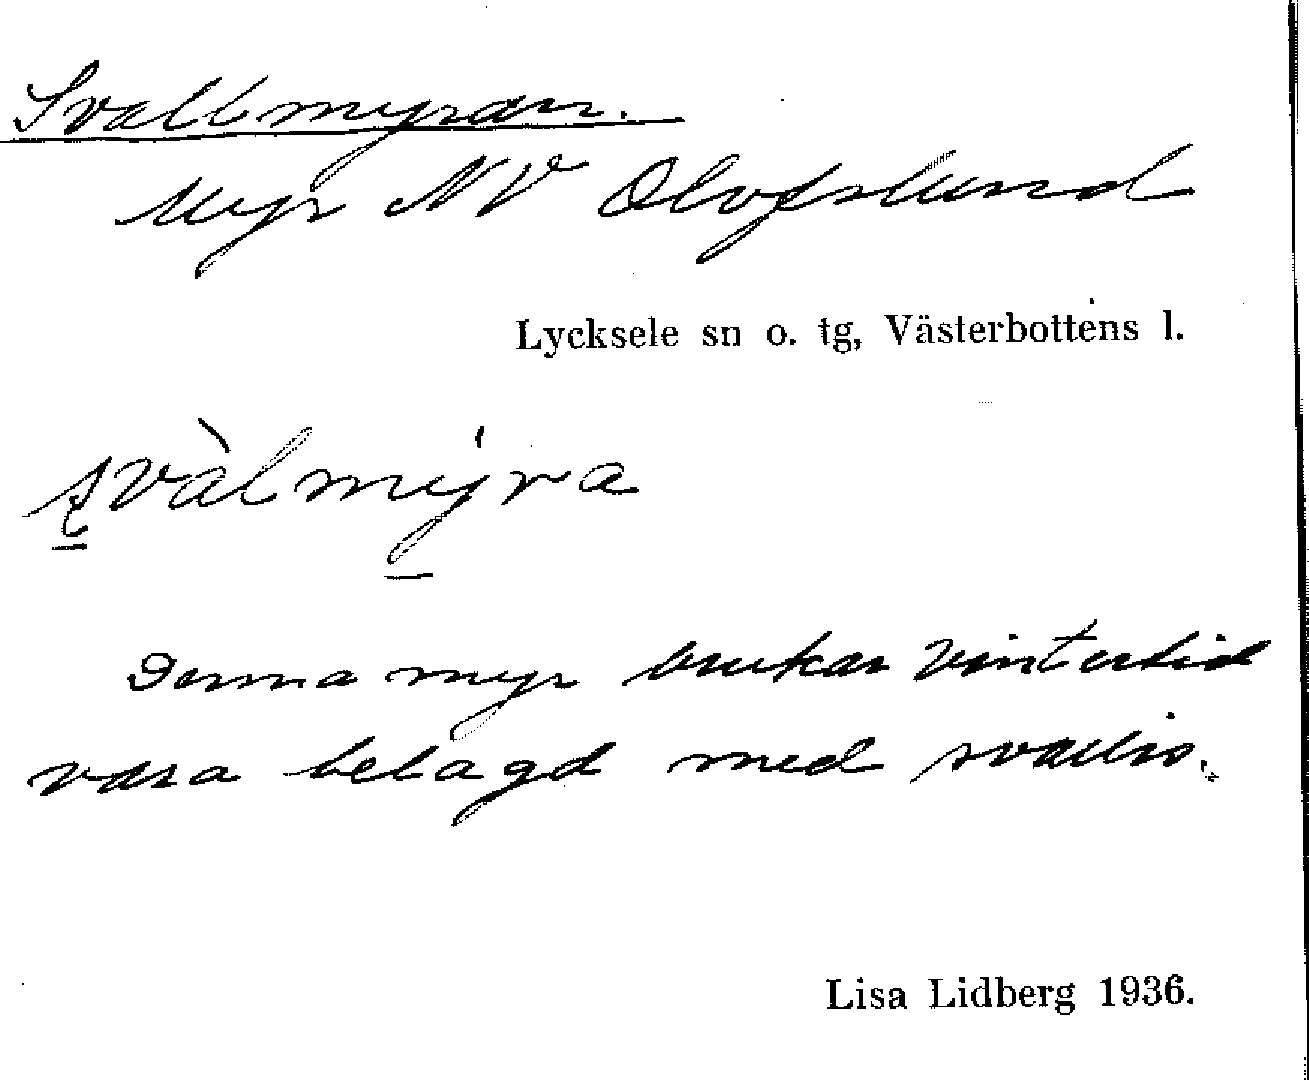 Svallmyran.
Myr NV Olofslund
Lycksele sn o. tg, Västerbottens l.
svàlmýra
Denna myr brukar vintertid
vara belagd med svallis.
Lisa Lidberg 1936.